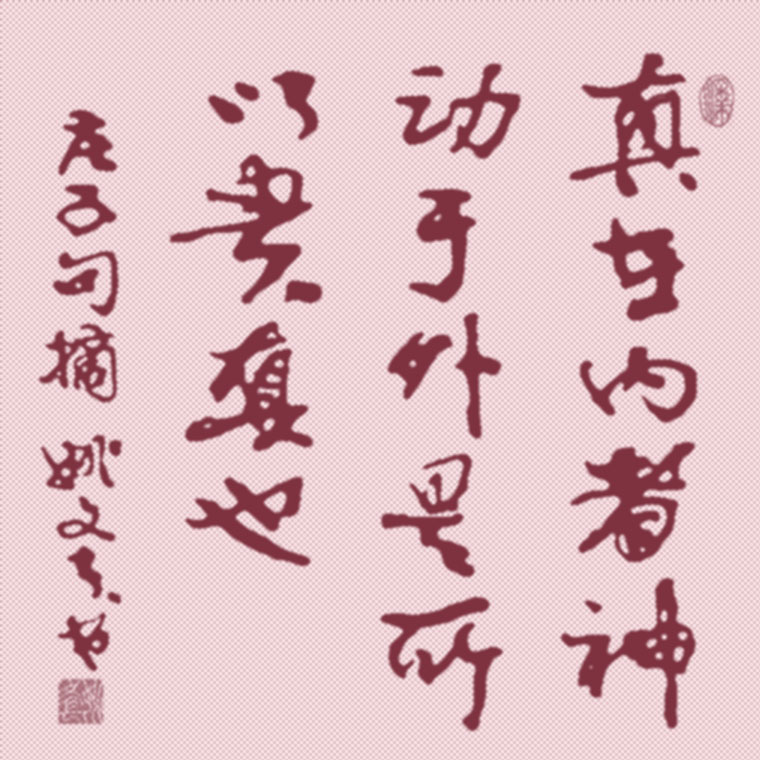 真在内者神
动于外是所
以贵真也
庄子句摘 姚文书